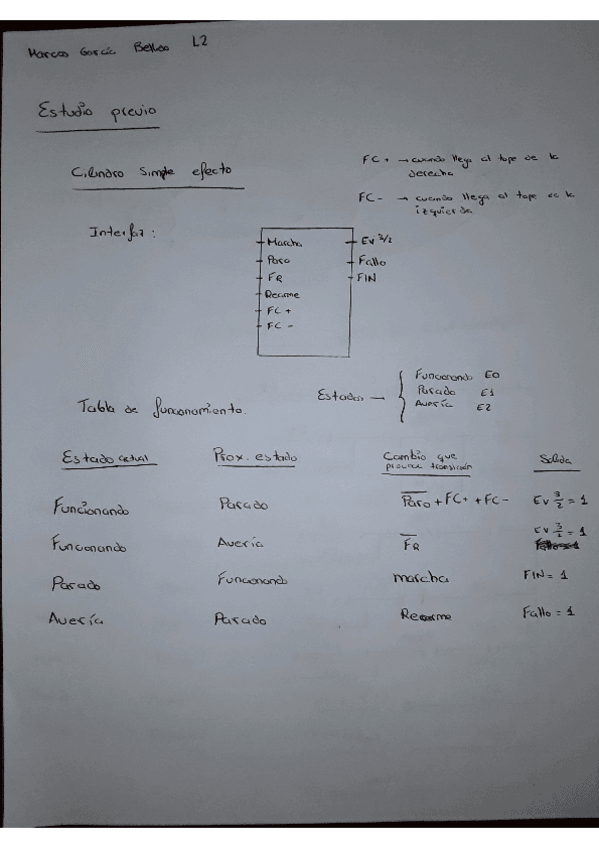 Marcos García Bellos L2
Estudio previo
Cilindro simple efecto
FC+ → cuando llega al tope de la
derecha
FC- → cuando llega al tope de la
izquierda
Interfaz:
Marcha EV 3/2
Paro Fallo
FR FIN
Rearme
FC+
FC-
Estados → { Funcionando E0
Parado E1
Avería E2
Tabla de funcionamiento.
Estado actual Prox. estado Cambio que Salida
provoca transición
Funcionando Parado P̅a̅r̅o̅ + FC+ + FC- EV 3/2 = 1
Funcionando Avería F̅R̅ EV 3/2 = 1
Parado Funcionando marcha FIN = 1
Avería Parado Rearme Fallo = 1